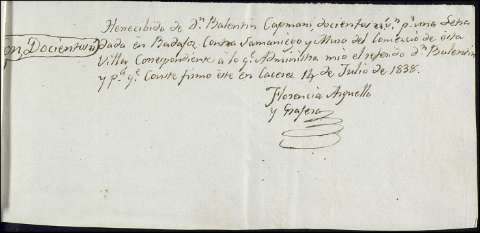 He recibido de Dn. Balentin Capmani, docientos rs. vn. pr. una Letra
son Docientos rs. dada en Badajoz Contra Samaniego y Muro del Comercio de esta
Villa, Correspondiente á lo qe. Administra mio el referido Dn. Balentin
y pa. qe. Conste firmo este en Caceres 14 de Julio de 1838.
Florencia Arguello
y Grajera